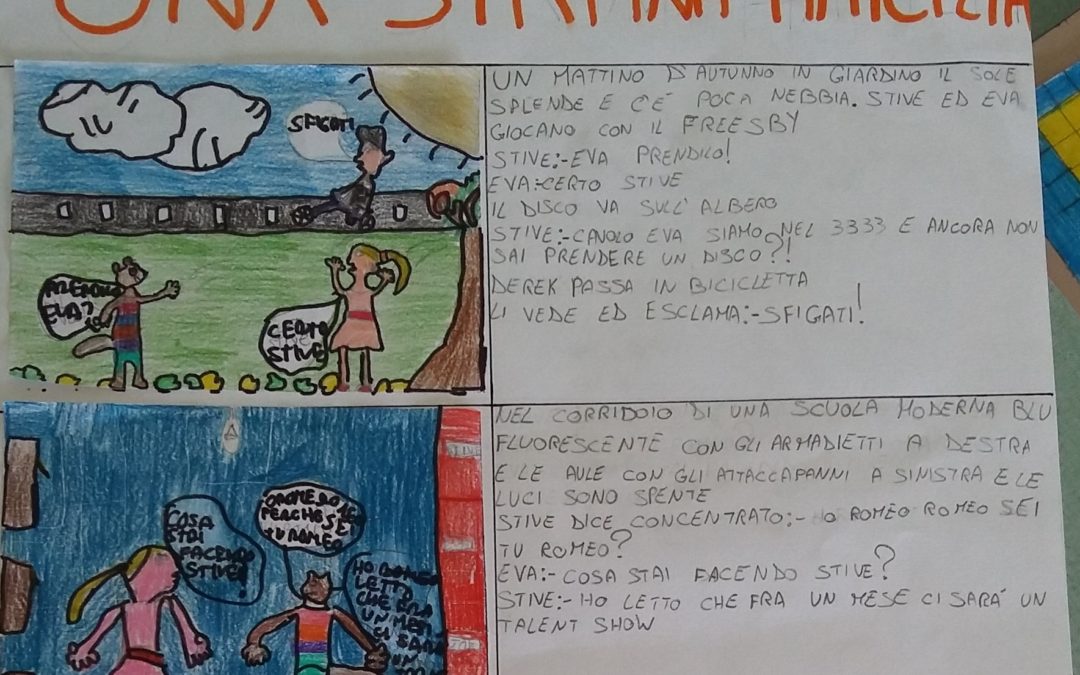 UNA STRANA AMICIZIA
SFIGATI
EVA?
CERTO
STIVE
UN MATTINO D'AUTUNNO IN GIARDINO IL SOLE
SPLENDE E C'È POCA NEBBIA. STIVE ED EVA
GIOCANO CON IL FREESBY
STIVE:-EVA PRENDILO!
EVA:-CERTO STIVE
IL DISCO VA SULL'ALBERO
STIVE:-CAVOLO EVA SIAMO NEL 3333 E ANCORA NON
SAI PRENDERE UN DISCO?!
DEREK PASSA IN BICICLETTA
LI VEDE ED ESCLAMA:-SFIGATI!
COSA
STAI
FACENDO
STIVE?
OROMEO
PERCHÈ SEI
TU ROMEO
HO
LETTO
CHE FRA
UN MESE
CI SARÀ
UN
NEL CORRIDOIO DI UNA SCUOLA MODERNA BLU
FLUORESCENTE CON GLI ARMADIETTI A DESTRA
E LE AULE CON GLI ATTACCAPANNI A SINISTRA E LE
LUCI SONO SPENTE
STIVE DICE CONCENTRATO:- HO ROMEO ROMEO SEI
TU ROMEO?
EVA:- COSA STAI FACENDO STIVE?
STIVE:- HO LETTO CHE FRA UN MESE CI SARÀ UN
TALENT SHOW